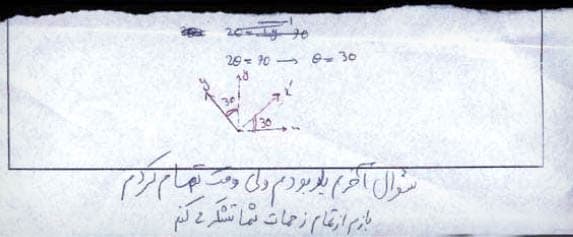 2θ = 70 → θ = 30
y y x'
30 30 x
سوال آخرم بلد بودم ولی وقت تمام کردم
بازم از تمام زحمات شما تشکر می کنم